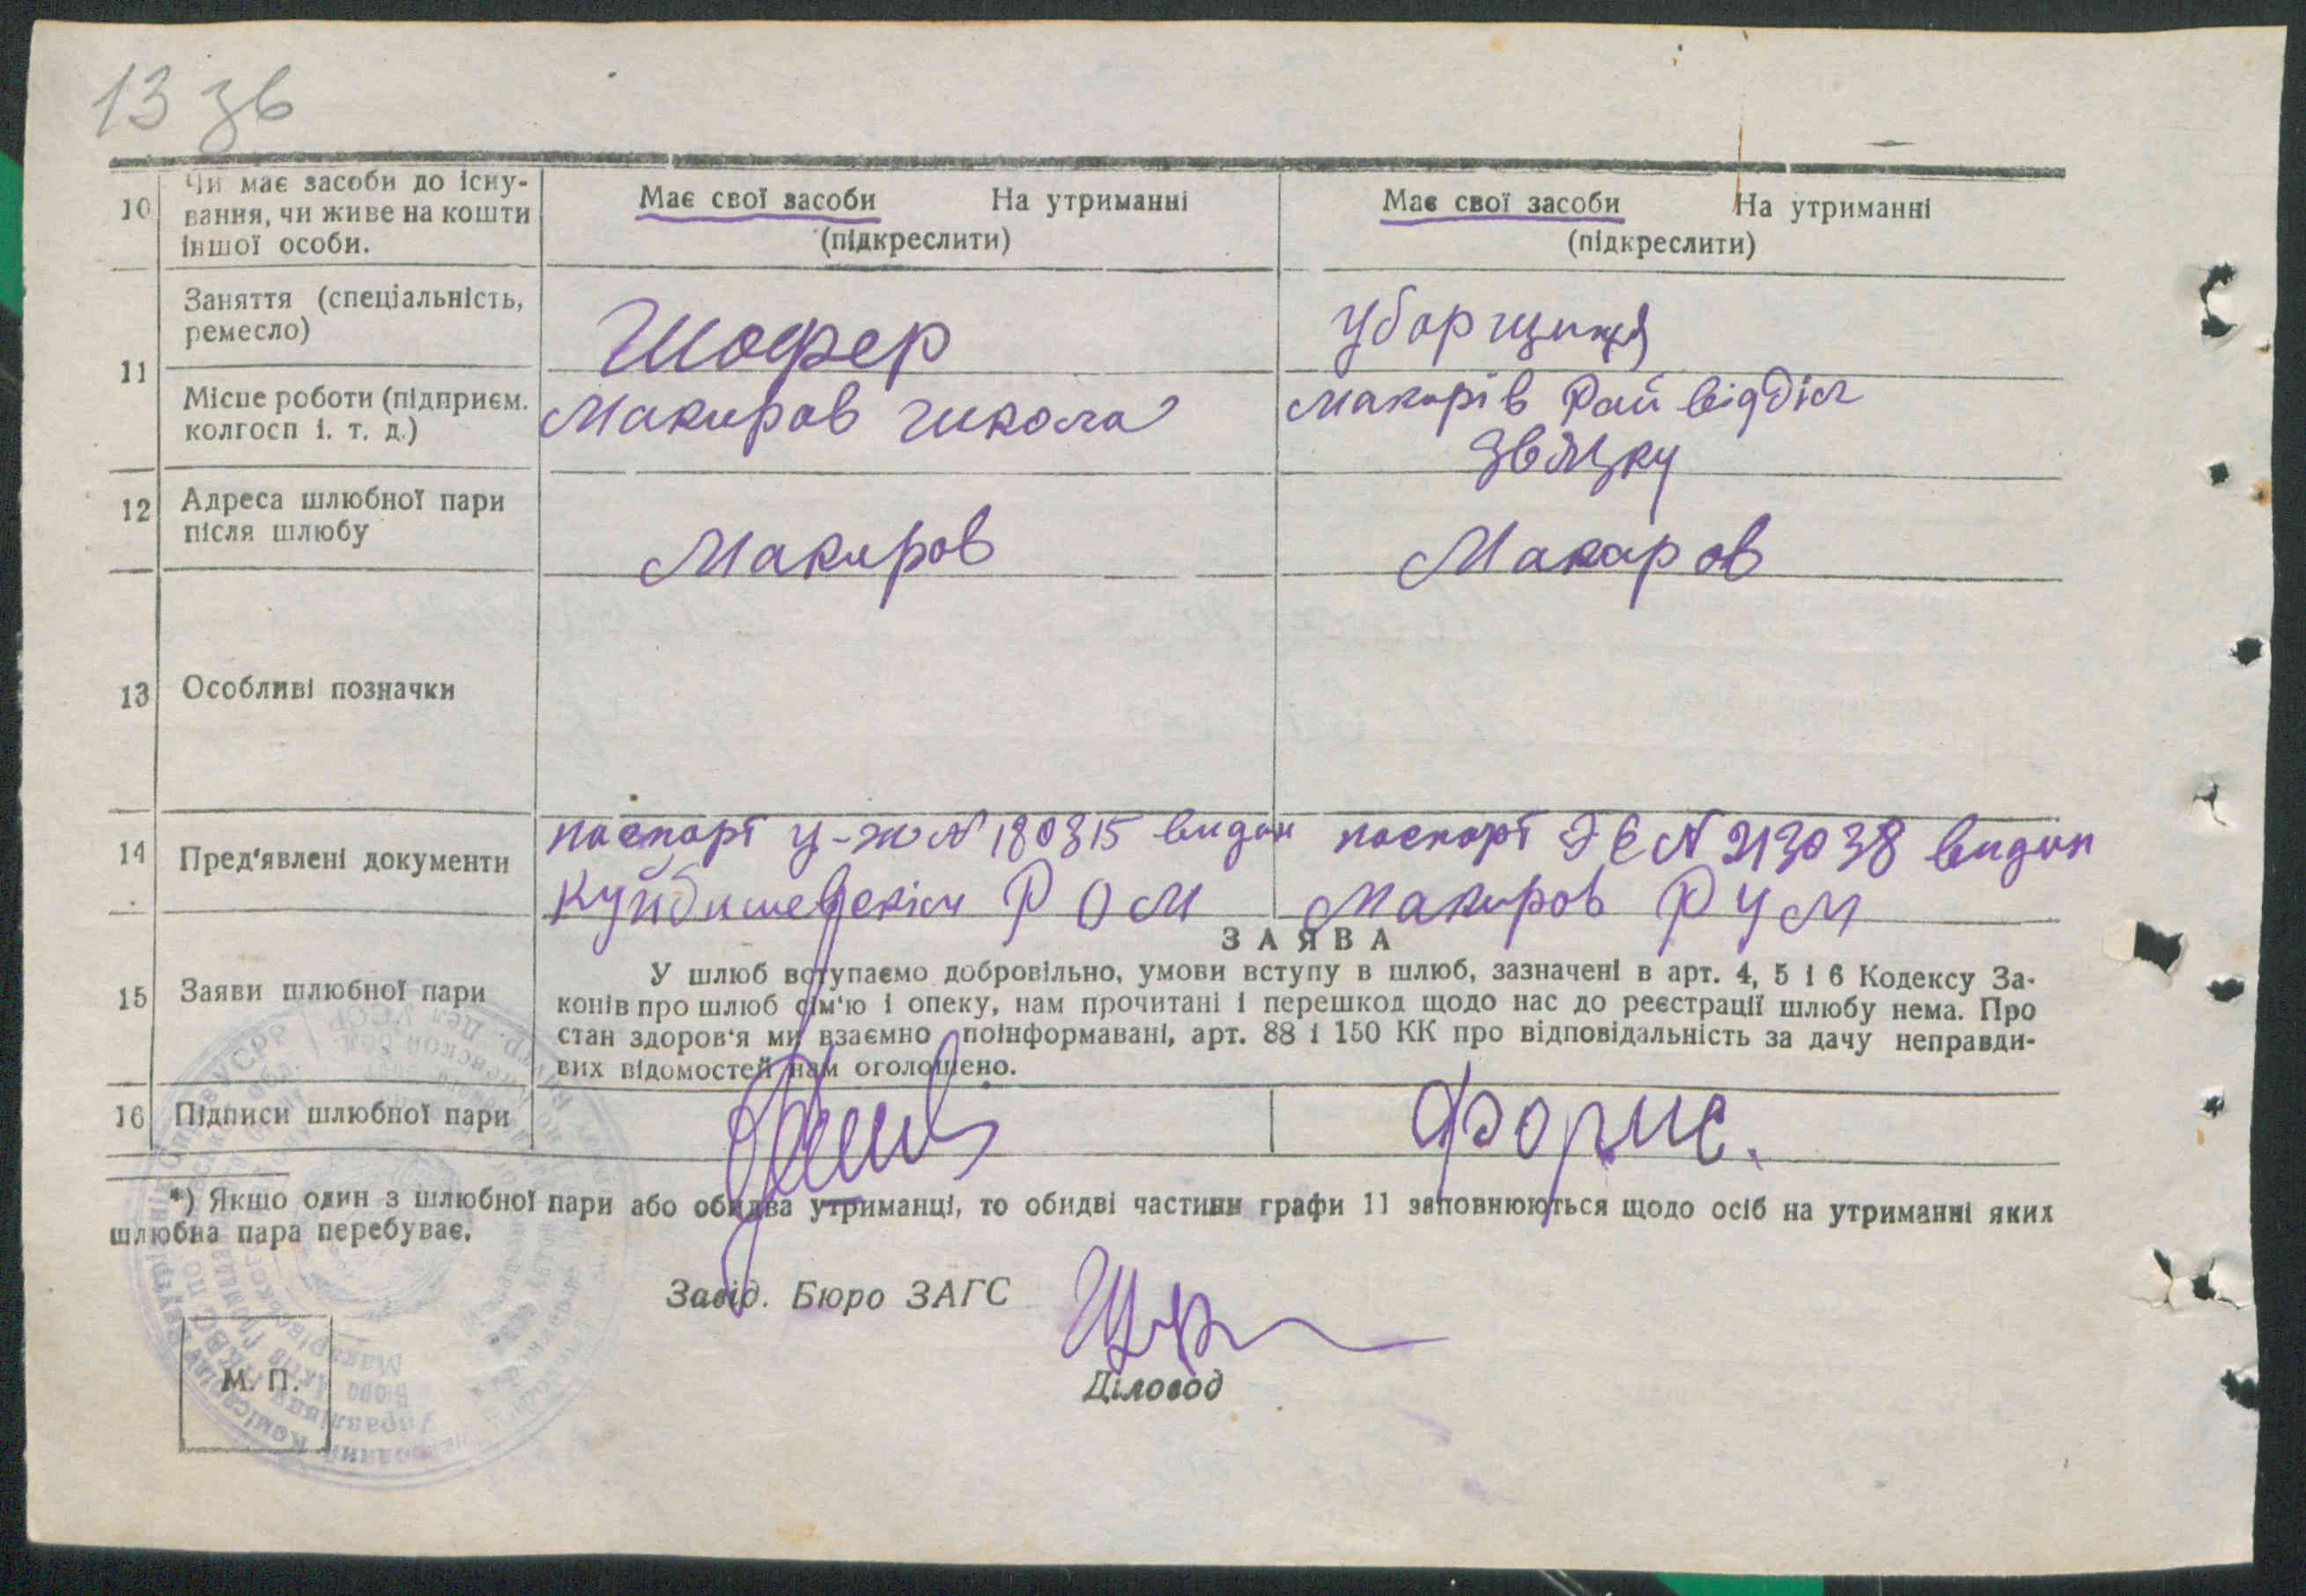 13 зв
10 Чи має засоби до існу-
вання, чи живе на кошти
іншої особи.
Має свої засоби На утриманні
(підкреслити)
Має свої засоби На утриманні
(підкреслити)
11
Заняття (спеціальність,
ремесло)
Шофер
Уборщиця
Місце роботи (підприєм.
колгосп і. т. д.)
Макаров школа
Макарів Рай відділ
Звязку
12 Адреса шлюбної пари
після шлюбу
Макаров
Макаров
13 Особливі позначки
14 Пред'явлені документи
паспорт У-Ж N 180815 видан
Куйбишевскім РОМ
паспорт ЭЄ N 213038 видан
Макаров РУМ
15 Заяви шлюбної пари
ЗАЯВА
У шлюб вступаємо добровільно, умови вступу в шлюб, зазначені в арт. 4, 5 і 6 Кодексу За-
конів про шлюб сім'ю і опеку, нам прочитані і перешкод щодо нас до реєстрації шлюбу нема. Про
стан здоров'я ми взаємно поінформавані, арт. 88 і 150 КК про відповідальність за дачу неправди-
вих відомостей нам оголошено.
16 Підписи шлюбної пари
*) Якщо один з шлюбної пари або обидва утриманці, то обидві частини графи 11 заповнюються щодо осіб на утриманні яких
шлюбна пара перебуває.
Завід. Бюро ЗАГС
Діловод
М. П.